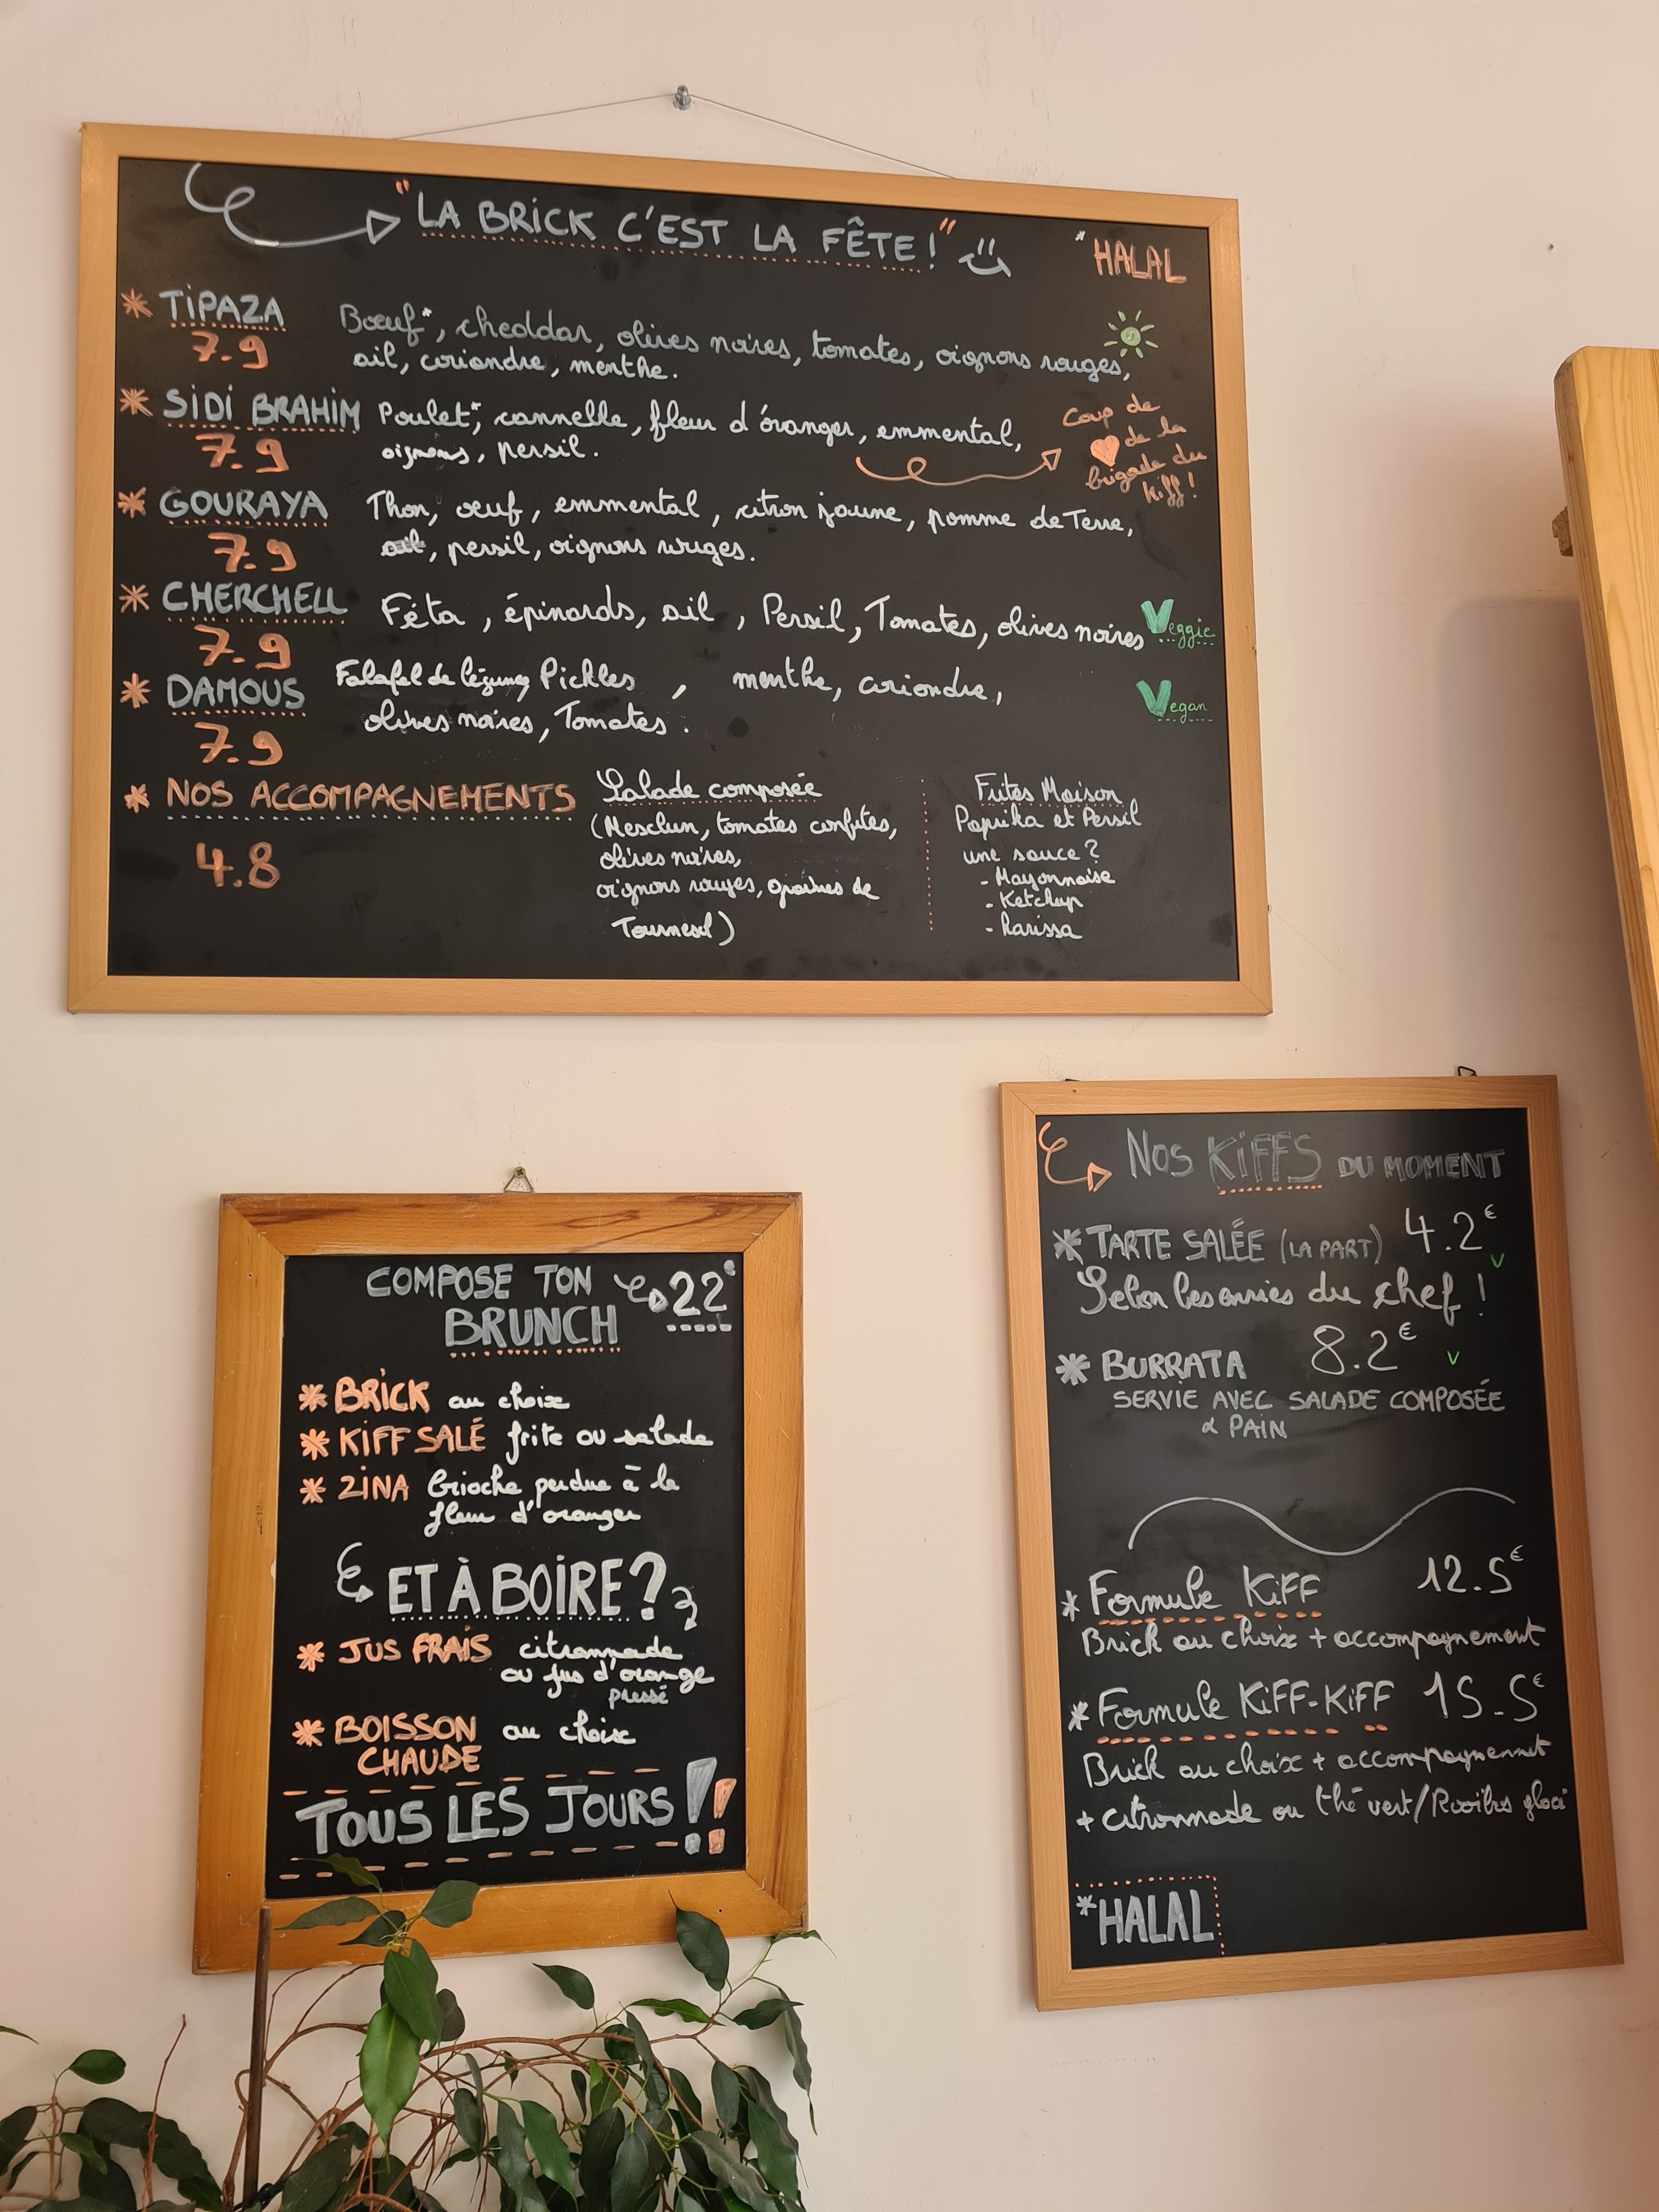 "LA BRICK C'EST LA FÊTE!"
*HALAL
* TIPAZA
7.9
Bœuf*, cheddar, olives noires, tomates, oignons rouges,
ail, coriandre, menthe.
* SIDI BRAHIM
7.9
Poulet*, cannelle, fleur d'oranger, emmental,
oignons, persil.
Coup de
de la
brigade du
Kiff!
* GOURAYA
7.9
Thon, œuf, emmental, citron jaune, pomme de Terre,
persil, oignons rouges.
* CHERCHELL
7.9
Féta, épinards, ail, Persil, Tomates, olives noires
Veggie
* DAMOUS
7.9
Falafel de légumes Pickles, menthe, coriandre,
olives noires, Tomates.
Vegan
* NOS ACCOMPAGNEMENTS
4.8
Salade composée
(Mesclun, tomates confites,
olives noires,
oignons rouges, graines de
Tournesol)
Frites Maison
Paprika et Persil
une sauce?
- Mayonnaise
- Ketchup
- harissa
COMPOSE TON
BRUNCH
22€
* BRICK au choix
* KIFF SALÉ frite ou salade
* ZINA brioche perdue à la
fleur d'oranger
ET À BOIRE?
* JUS FRAIS citronnade
ou jus d'orange
pressé
* BOISSON au choix
CHAUDE
TOUS LES JOURS!!
NOS KIFFS DU MOMENT
* TARTE SALÉE (LA PART) 4.2€
V
Selon les envies du chef!
* BURRATA 8.2€ V
SERVIE AVEC SALADE COMPOSÉE
& PAIN
* Formule KiFF 12.5€
Brick au choix + accompagnement
* Formule KiFF-KiFF 15.5€
Brick au choix + accompagnement
+ citronnade ou thé vert/Rooibos glacé
*HALAL